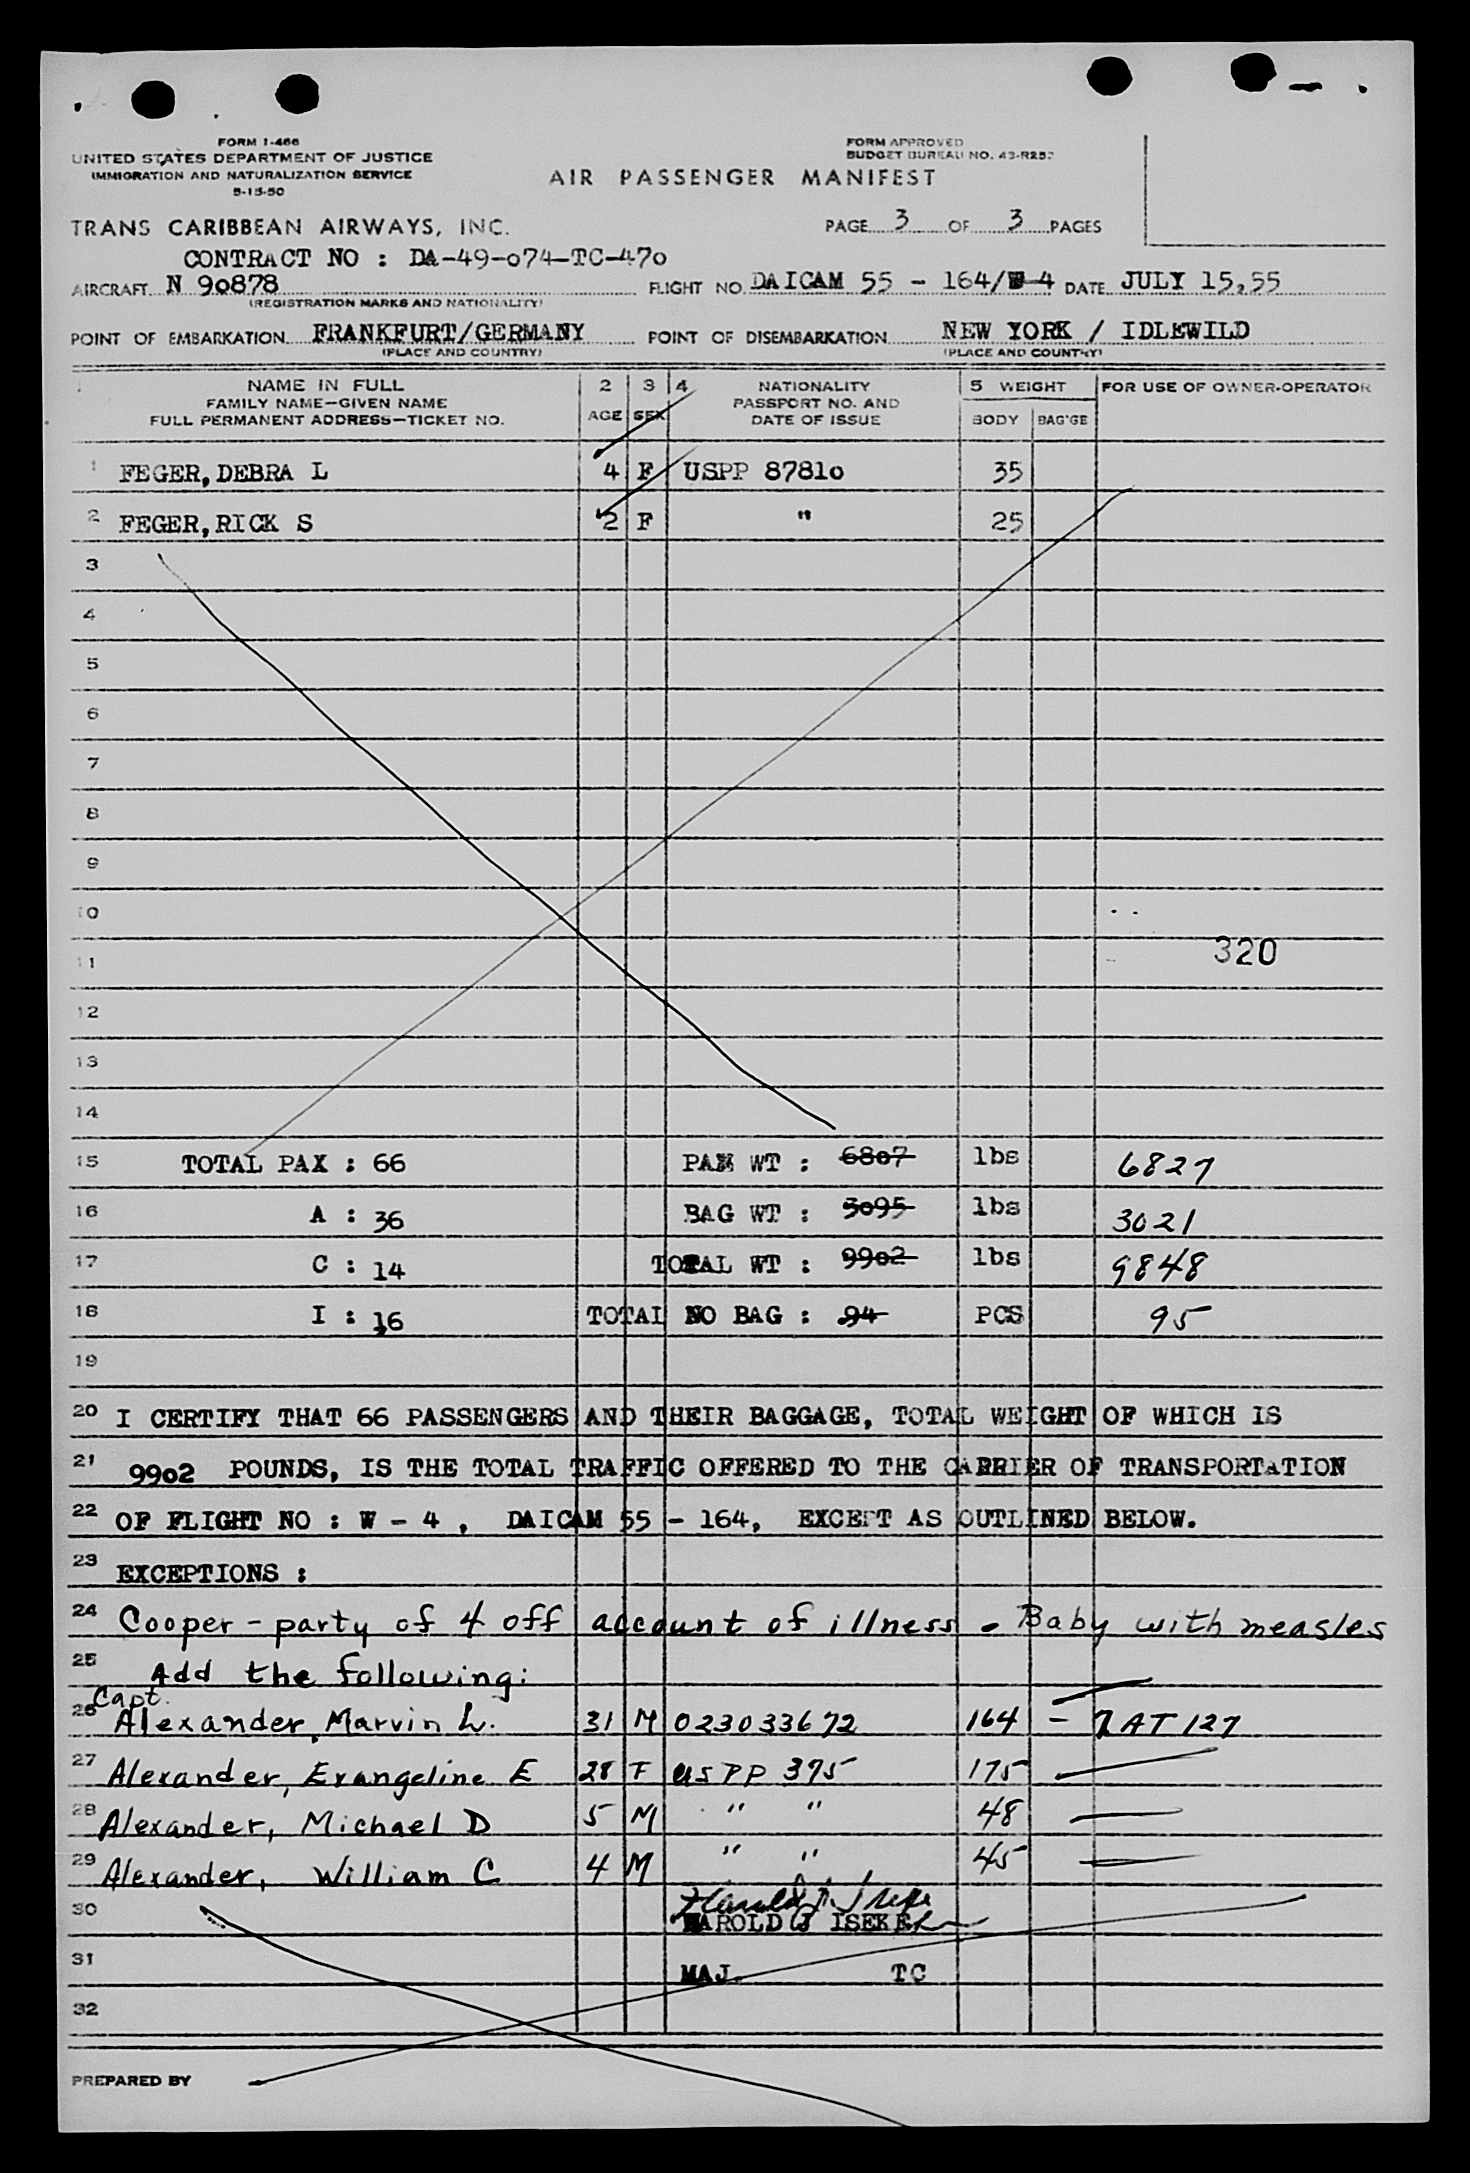 FORM I-466
UNITED STATES DEPARTMENT OF JUSTICE
IMMIGRATION AND NATURALIZATION SERVICE
5-15-50
FORM APPROVED
BUDGET BUREAU NO. 43-R252
AIR PASSENGER MANIFEST
TRANS CARIBBEAN AIRWAYS, INC.
PAGE 3 OF 3 PAGES
CONTRACT NO : DA-49-074-TC-470
AIRCRAFT N 90878 FLIGHT NO. DAICAM 55 - 164/W-4 DATE JULY 15,55
(REGISTRATION MARKS AND NATIONALITY)
POINT OF EMBARKATION FRANKFURT/GERMANY POINT OF DISEMBARKATION NEW YORK / IDLEWILD
(PLACE AND COUNTRY) (PLACE AND COUNTRY)
NAME IN FULL 2 3 4 NATIONALITY 5 WEIGHT FOR USE OF OWNER-OPERATOR
FAMILY NAME-GIVEN NAME AGE SEX PASSPORT NO. AND
FULL PERMANENT ADDRESS-TICKET NO. DATE OF ISSUE BODY BAG'GE
1 FEGER,DEBRA L 4 F USPP 87810 35
2 FEGER,RICK S 2 F " 25
3
4
5
6
7
8
9
10
320
11
12
13
14
15 TOTAL PAX : 66 PAX WT : 6807 lbs 6827
16 A : 36 BAG WT : 3095 lbs 3021
17 C : 14 TOTAL WT : 9902 lbs 9848
18 I : 16 TOTAL NO BAG : 94 PCS 95
19
20 I CERTIFY THAT 66 PASSENGERS AND THEIR BAGGAGE, TOTAL WEIGHT OF WHICH IS
21 9902 POUNDS, IS THE TOTAL TRAFFIC OFFERED TO THE CARRIER OF TRANSPORTATION
22 OF FLIGHT NO : W - 4 , DAICAM 55 - 164, EXCEPT AS OUTLINED BELOW.
23 EXCEPTIONS :
24 Cooper - party of 4 off account of illness - Baby with measles
25 Add the following:
Capt.
26 Alexander, Marvin L. 31 M 023033672 164 - 7 AT 127
27 Alexander, Evangeline E 28 F USPP 375 175
28 Alexander, Michael D 5 M " " 48
29 Alexander, William C 4 M " " 45
30 HAROLD J ISEKE
31 MAJ. TC
32
PREPARED BY